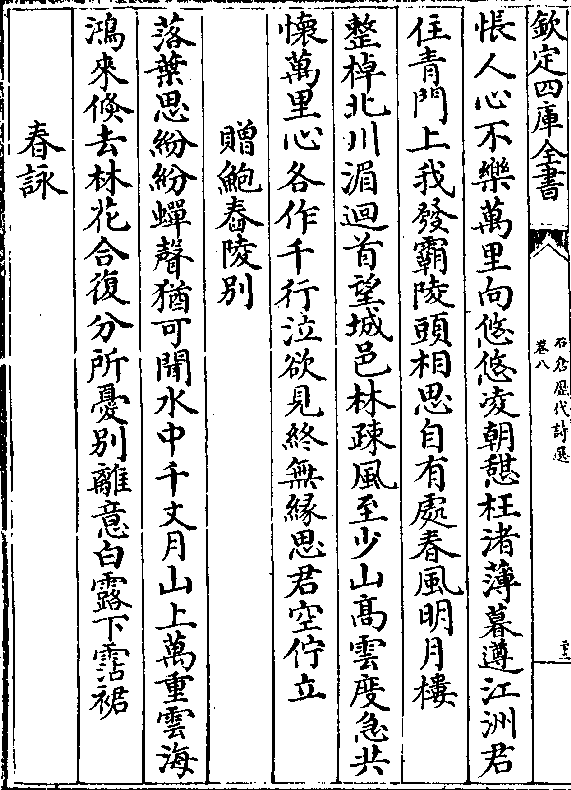 欽定四庫全書
石倉歷代詩選
卷八
悵人心不樂萬里向悠悠凌朝憩枉渚薄暮遵江洲君
住青門上我發霸陵頭相思自有處春風明月樓
整棹北川湄迴首望城邑林疎風至少山髙雲度急共
懷萬里心各作千行泣欲見終無縁思君空佇立
贈鮑舂陵别
落葉思紛紛蟬聲猶可聞水中千丈月山上萬重雲海
鴻來倐去林花合復分所憂别離意白露下霑裾
春詠